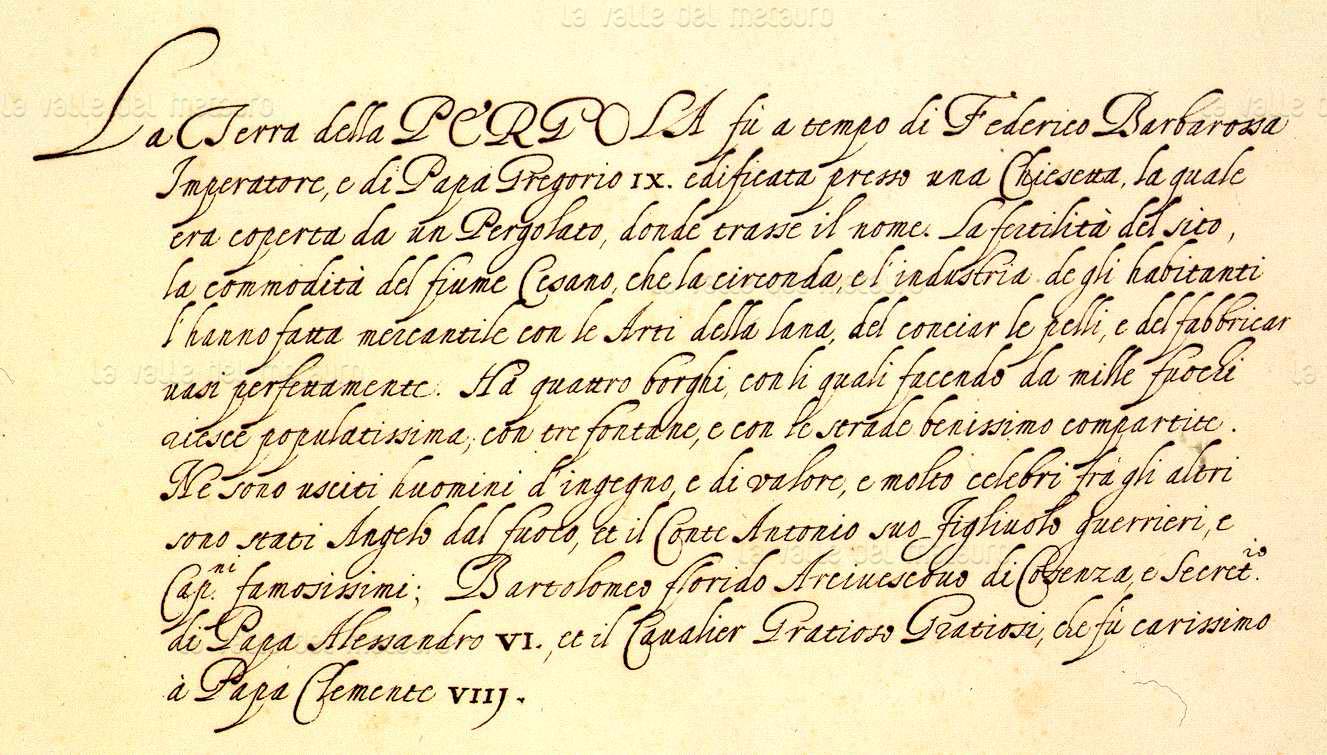 la valle del metauro
La Terra della PERGOLA fù a tempo di Federico Barbarossa
Imperatore, e di Papa Gregorio IX. edificata presso una Chiesetta, la quale
era coperta da un Pergolato, donde trasse il nome. La fertilità del sito,
la commodità del fiume Cesano, che la circonda, e l'industria de gli habitanti
l'hanno fatta mercantile con le Arti della lana, del conciar le pelli, e del fabbricar
vasi perfettamente. Ha quattro borghi, con li quali facendo da mille fuochi
riesce populatissima, con tre fontane, e con le strade benissimo compartite.
Ne sono usciti huomini d'ingegno, e di valore, e molto celebri frà gli altri
sono stati Angelo dal fuoco, et il Conte Antonio suo figliuolo guerrieri, e
Cap.ni famosissimi; Bartolomeo florido Arcivescovo di Cosenza, e Secret.io
di Papa Alessandro VI., et il Cavalier Gratioso Gratiosi, che fù carissimo
à Papa Clemente VIIJ.